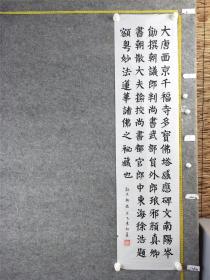 大唐西京千福寺多寶佛塔感應碑文南陽岑
勛撰朝議郎判尚書武部員外郎琅邪顏真卿
書朝散大夫撿校尚書都官郎中東海徐浩題
額粵妙法蓮華諸佛之秘藏也